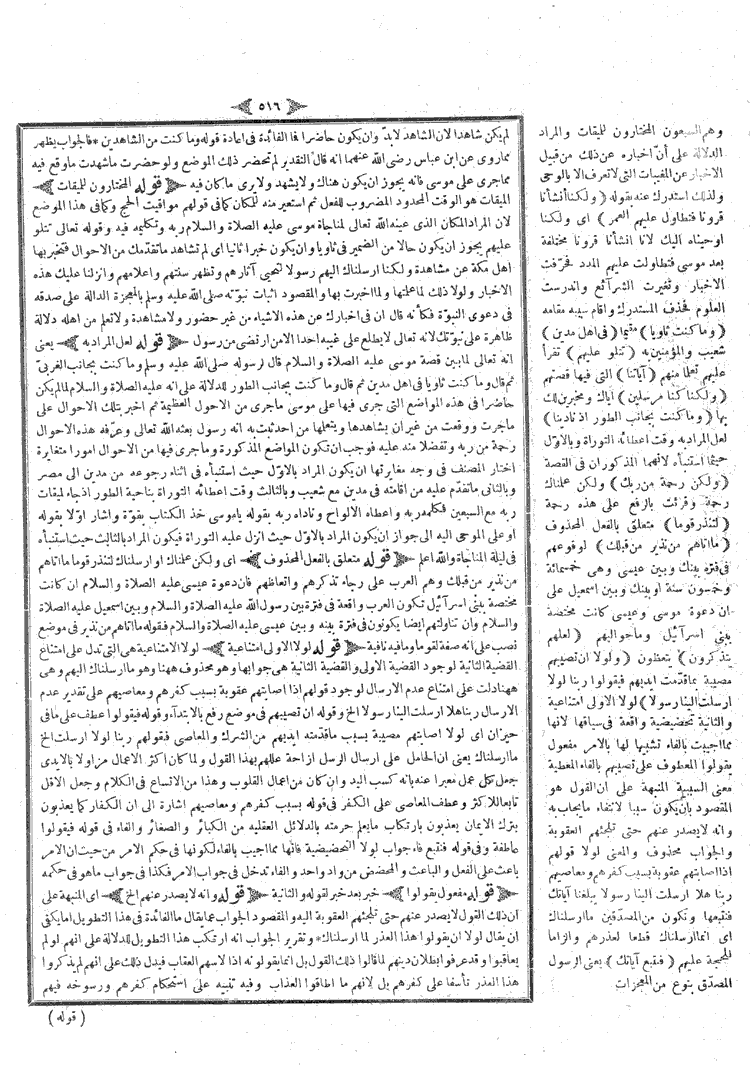 ﴿ ٥١٦ ﴾
لم يكن شاهدا لان الشاهد لابد وان يكون حاضرا فما الفائدة فى اعادة قوله وما كنت من الشاهدين * فالجواب يظهر
مماروى عن ابن عباس رضى الله عنهما انه قال التقدير لم تحضر ذلك الموضع ولو حضرت ما شهدت ما وقع فيه
مما جرى على موسى فانه يجوز ان يكون هناك ولا يشهد ولا يرى ما كان فيه ﴿ قوله المختارون للميقات ﴾
الميقات هو الوقت المحدود المضروب للفعل ثم استعير منه للمكان كما فى قولهم مواقيت الحج وكما فى هذا الموضع
لان المراد المكان الذى عينه الله تعالى لمناجاة موسى عليه الصلاة والسلام ربه وتكليمه فيه وقوله تعالى تتلو
عليهم يجوز ان يكون حالا من الضمير فى ثاويا وان يكون خبرا ثانيا اى لم تشاهد ما تقدمك من الاحوال فتخبر بها
اهل مكة عن مشاهدة ولكنا ارسلناك اليهم رسولا لتحيى آثارهم وتظهر سنتهم واعلامهم وانزلنا عليك هذه
الاخبار ولولا ذلك لما علمتها ولما اخبرت بها والمقصود اثبات نبوته صلى الله عليه وسلم بالمعجزة الدالة على صدقه
فى دعوى النبوة فكأنه قال ان فى اخبارك عن هذه الاشياء من غير حضور ولا مشاهدة ولا تعلم من اهله دلالة
ظاهرة على نبوتك لانه تعالى لا يطلع على غيبه احدا الا من ارتضى من رسول ﴿ قوله لعل المراد به ﴾ يعنى
انه تعالى لما بين قصة موسى عليه الصلاة والسلام قال لرسوله صلى الله عليه وسلم وما كنت بجانب الغربى
ثم قال وما كنت ثاويا فى اهل مدين ثم قال وما كنت بجانب الطور للدلالة على انه عليه الصلاة والسلام لما لم يكن
حاضرا فى هذه المواضع التى جرى فيها على موسى ما جرى من الاحوال العظيمة ثم اخبر بتلك الاحوال على
ما جرت ووقعت من غير ان يشاهدها ويتعلمها من احد ثبت به انه رسول بعثه الله تعالى وعرفه هذه الاحوال
رحمة من ربه وتفضلا منه عليه فوجب ان تكون المواضع المذكورة وما جرى فيها من الاحوال امورا متغايرة
اختار المصنف فى وجه مغايرتها ان يكون المراد بالاول حيث استنبأه فى اثناء رجوعه من مدين الى مصر
وبالثانى ما تقدم عليه من اقامته فى مدين مع شعيب وبالثالث وقت اعطائه التوراة بناحية الطور اذ جاء لميقات
ربه مع السبعين فكلمه ربه واعطاه الالواح وناداه ربه بقوله يا موسى خذ الكتاب بقوة واشار اولا بقوله
او على الموحى اليه الى جواز ان يكون المراد بالاول حيث انزل عليه التوراة فيكون المراد بالثالث حيث استنبأه
فى ليلة المناجاة والله اعلم ﴿ قوله متعلق بالفعل المحذوف ﴾ اى ولكن علمناك او ارسلناك لتنذر قوما ما اتاهم
من نذير من قبلك وهم العرب على رجاء تذكرهم واتعاظهم فان دعوة عيسى عليه الصلاة والسلام ان كانت
مختصة ببنى اسرآئيل تكون العرب واقعة فى فترة بين رسول الله عليه الصلاة والسلام وبين اسمعيل عليه الصلاة
والسلام وان تناولتهم ايضا يكونون فى فترة بينه وبين عيسى عليه الصلاة والسلام فقوله ما اتاهم من نذير فى موضع
نصب على انه صفة لقوما وما فيه نافية ﴿ قوله لولا الاولى امتناعية ﴾ لولا الامتناعية هى التى تدل على امتناع
القضية الثانية لوجود القضية الاولى والقضية الثانية هى جوابها وهو محذوف ههنا وهو ما ارسلناك اليهم وهى
ههنا دلت على امتناع عدم الارسال لوجود قولهم اذا اصابتهم عقوبة بسبب كفرهم ومعاصيهم على تقدير عدم
الارسال ربنا هلا ارسلت الينا رسولا الخ وقوله ان تصيبهم فى موضع رفع بالابتداء وقوله فيقولوا عطف على ما فى
حيز ان اى لولا اصابتهم مصيبة بسبب ما قدمته ايديهم من الشرك والمعاصى فيقولهم ربنا لولا ارسلت الخ
ما ارسلناك يعنى ان الحامل على ارسال الرسل ازاحة عللهم بهذا القول ولما كان اكثر الاعمال مزاولا بالايدى
جعل كل عمل معبرا عنه بانه كسب اليد وان كان من اعمال القلوب وهذا من الاتساع فى الكلام وجعل الاقل
تابعا للاكثر وعطف المعاصى على الكفر فى قوله بسبب كفرهم ومعاصيهم اشارة الى ان الكفار كما يعذبون
بترك الايمان يعذبون بارتكاب ما يعلم حرمته بالدلائل العقليه من الكبائر و الصغائر والفاء فى قوله فيقولوا
عاطفة وفى قوله فنتبع فاء جواب لولا التحضيضية فانها مما اجيب بالفاء لكونها فى حكم الامر من حيث ان الامر
باعث على الفعل و الباعث و المحضض من واد واحد و الفاء تدخل فى جواب الامر فكذا فى جواب ما هو فى حكمه
﴿ قوله مفعول يقولوا ﴾ خبر بعد خبر لقوله والثانية ﴿ قوله وانه لا يصدر عنهم الخ ﴾ اى المنبهة على
ان ذلك القول لا يصدر عنهم حتى تلجئهم العقوبة اليه والمقصود الجواب عما يقال ما الفائدة فى هذا التطويل اما يكفى
ان يقال لولا ان يقولوا هذا العذر لما ارسلناك * وتقرير الجواب انه ارتكب هذا التطويل للدلالة على انهم لو لم
يعاقبوا وقد عرفوا بطلان دينهم لما قالوا ذلك القول بل انما يقولونه اذا لاسهم العقاب فيدل ذلك على انهم لم يذكروا
هذا العذر تأسفا على كفرهم بل لانهم ما اطاقوا العذاب وفيه تنبيه على استحكام كفرهم ورسوخه فيهم
( قوله )
وهم السبعون المختارون للميقات والمراد
الدلالة على أن اخباره عن ذلك من قبيل
الاخبار عن المغيبات التى لا تعرف الا بالوحى
ولذلك استدرك عنه بقوله ( ولكنا أنشأنا
قرونا فتطاول عليهم العمر ) اى ولكنا
اوحيناه اليك لانا انشأنا قرونا مختلفة
بعد موسى فتطاولت عليهم المدد فحرفت
الاخبار وتغيرت الشرآئع واندرست
العلوم فحذف المستدرك واقام سببه مقامه
( وما كنت ثاويا ) مقيما ( فى اهل مدين )
شعيب والمؤمنين به ( تتلو عليهم ) تقرأ
عليهم تعلما منهم ( آياتنا ) التى فيها قصتهم
( ولكنا كنا مرسلين ) اياك ومخبرين لك
بها ( وما كنت بجانب الطور اذ نادينا )
لعل المراد به وقت اعطائه التوراة وبالاول
حيثما استنبأه لانهما المذكوران فى القصة
( ولكن رحمة من ربك ) ولكن علمناك
رحمة وقرئت بالرفع على هذه رحمة
( لتنذر قوما ) متعلق بالفعل المحذوف
( ما اتاهم من نذير من قبلك ) لوقوعهم
فى فترة بينك وبين عيسى وهى خمسمائة
وخمسون سنة او بينك وبين اسمعيل على
ان دعوة موسى وعيسى كانت مختصة
ببنى اسرآئيل وما حواليهم ( لعلهم
يتذكرون ) يتعظون ( ولولا ان تصيبهم
مصيبة بما قدمت ايديهم فيقولوا ربنا لولا
ارسلت الينا رسولا ) لولا الاولى امتناعية
والثانية تحضيضية واقعة فى سياقها لانها
مما اجيبت بالفاء تشبيها لها بالامر مفعول
يقولوا المعطوف على تصيبهم بالفاء المعطية
معنى السببية المنبهة على ان القول هو
المقصود بأن يكون سببا لانتفاء ما يجاب به
وانه لا يصدر عنهم حتى تلجئهم العقوبة
والجواب محذوف والمعنى لولا قولهم
اذا اصابتهم عقوبة بسبب كفرهم ومعاصيهم
ربنا هلا ارسلت الينا رسولا يبلغنا آياتك
فنتبعها ونكون من المصدقين ما ارسلناك
اى انما ارسلناك قطعا لعذرهم والزاما
للحجة عليهم ( فنتبع آياتك ) يعنى الرسول
المصدق بنوع من المعجزات